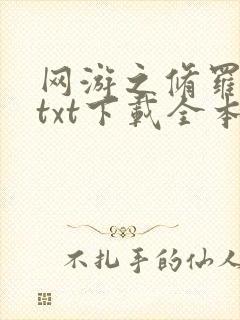 网游之修罗
txt下载全本
不扎手的仙人